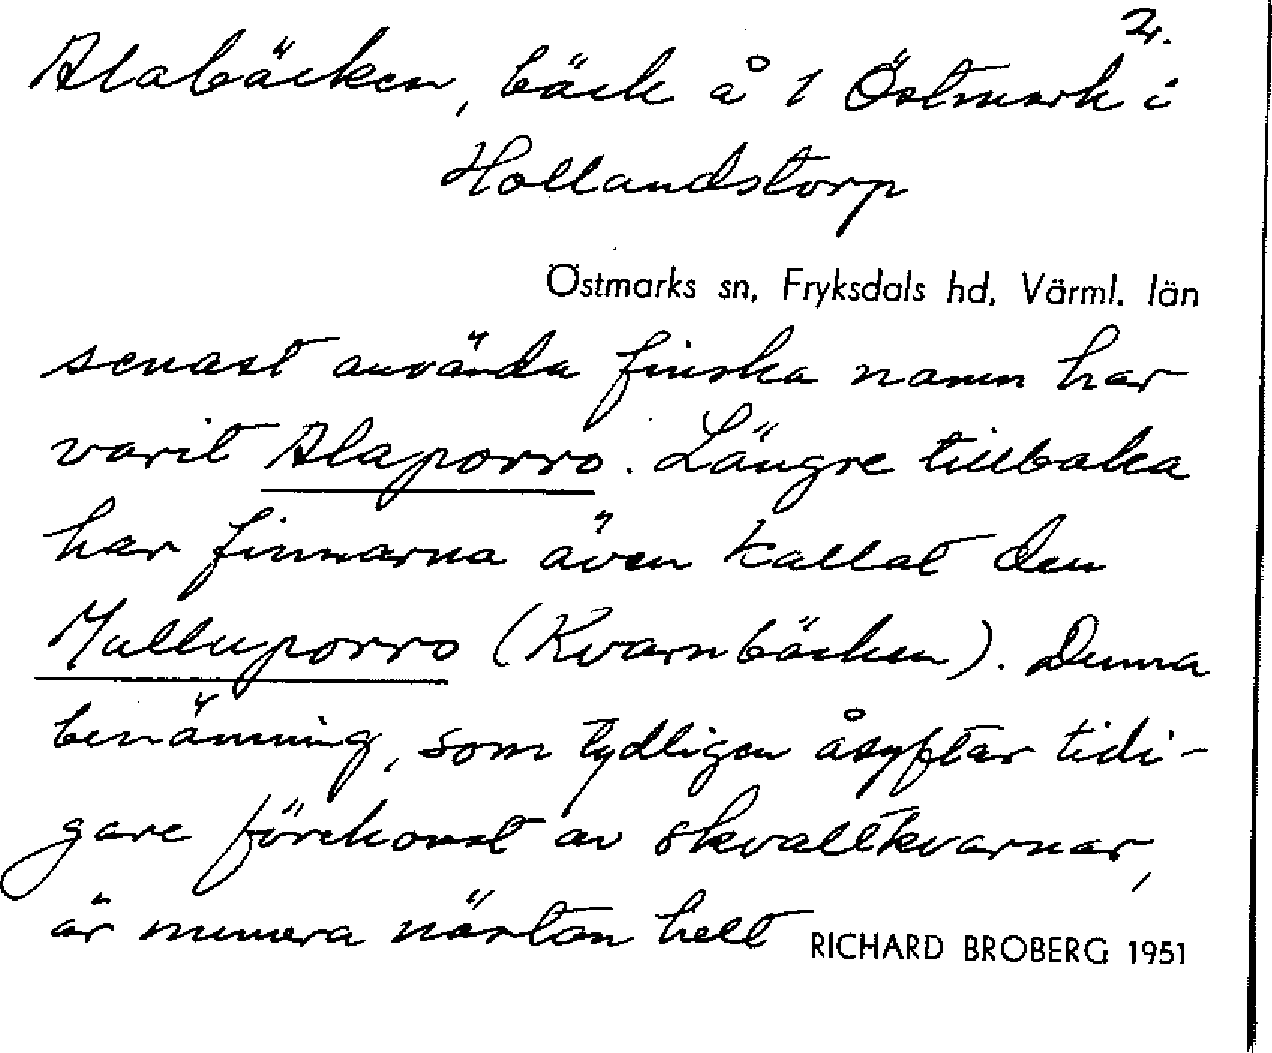 2.
Alabäcken, bäck å 1 Östmark i
Hollandstorp
Östmarks sn, Fryksdals hd, Värml. län
senast använda finska namn har
varit Alaporro. Längre tillbaka
har finnarna även kallat den
Mulluporro (Kvarnbäcken). Denna
benämning, som tydligen åsyftar tidi-
gare förekomst av skvaltkvarnar,
är numera nästan helt
RICHARD BROBERG 1951